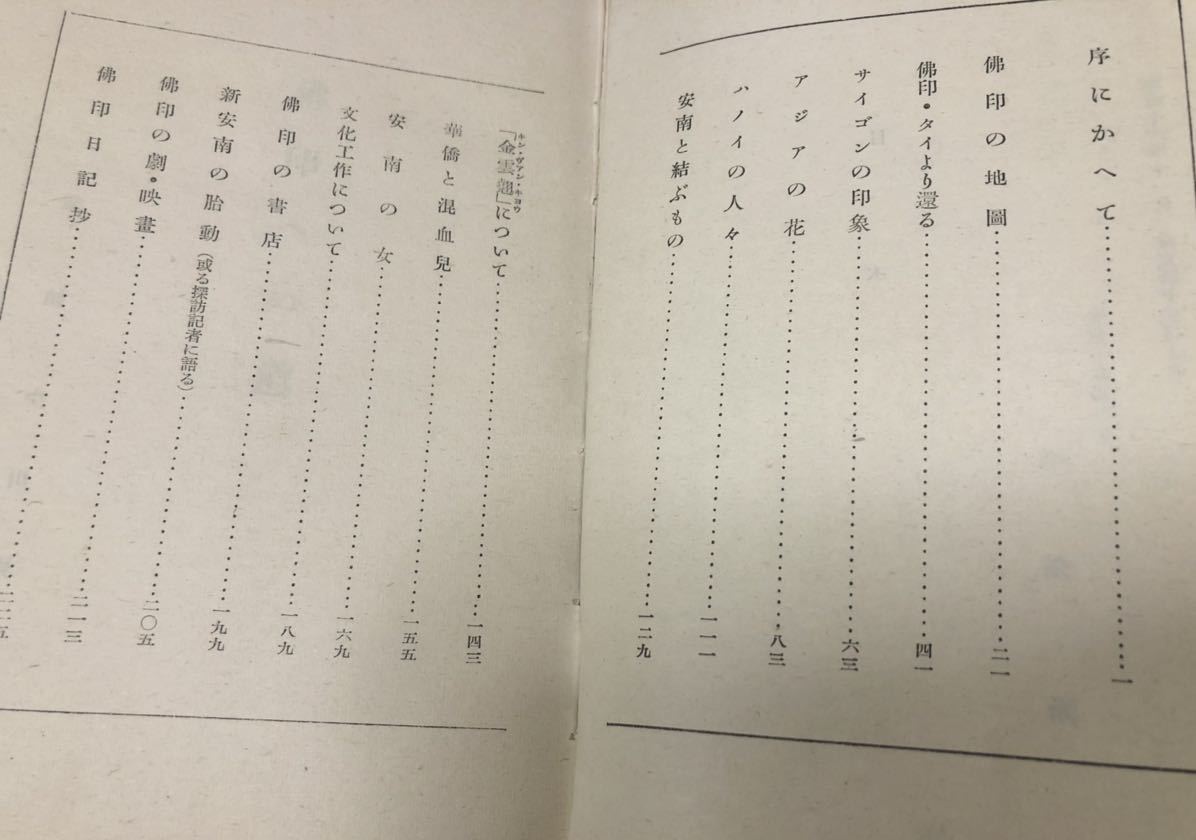 序にかへて……一
佛印の地圖……二一
佛印・タイより還る……四一
サイゴンの印象……六三
アジアの花……八三
ハノイの人々……一一一
安南と結ぶもの……一二九
キン・ヴアン・キヨウ
「金雲翹」について……一四三
華僑と混血兒……一五五
安南の女……一六九
文化工作について……一八九
佛印の書店……一九九
新安南の胎動(或る探訪記者に語る)……二〇五
佛印の劇・映畫……二一三
佛印日記抄……二二五